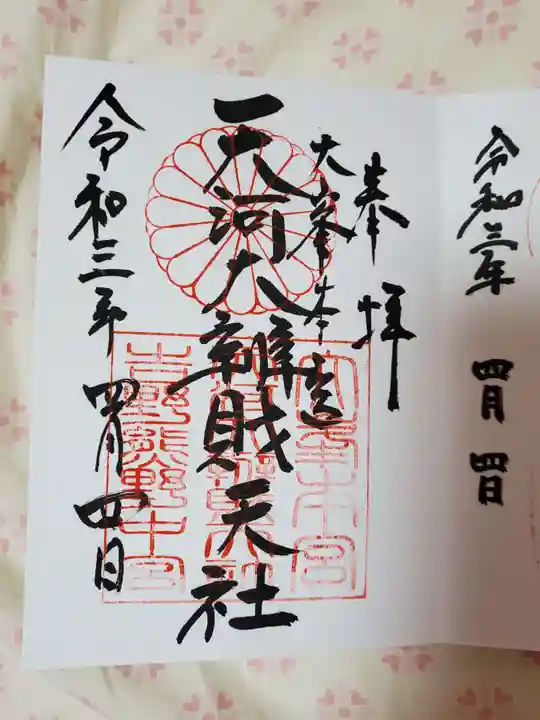 令和三年 四月 四日
奉拝
大峯本宮
天河大辨財天社
令和三年 四月 四日
吉野熊野中宮